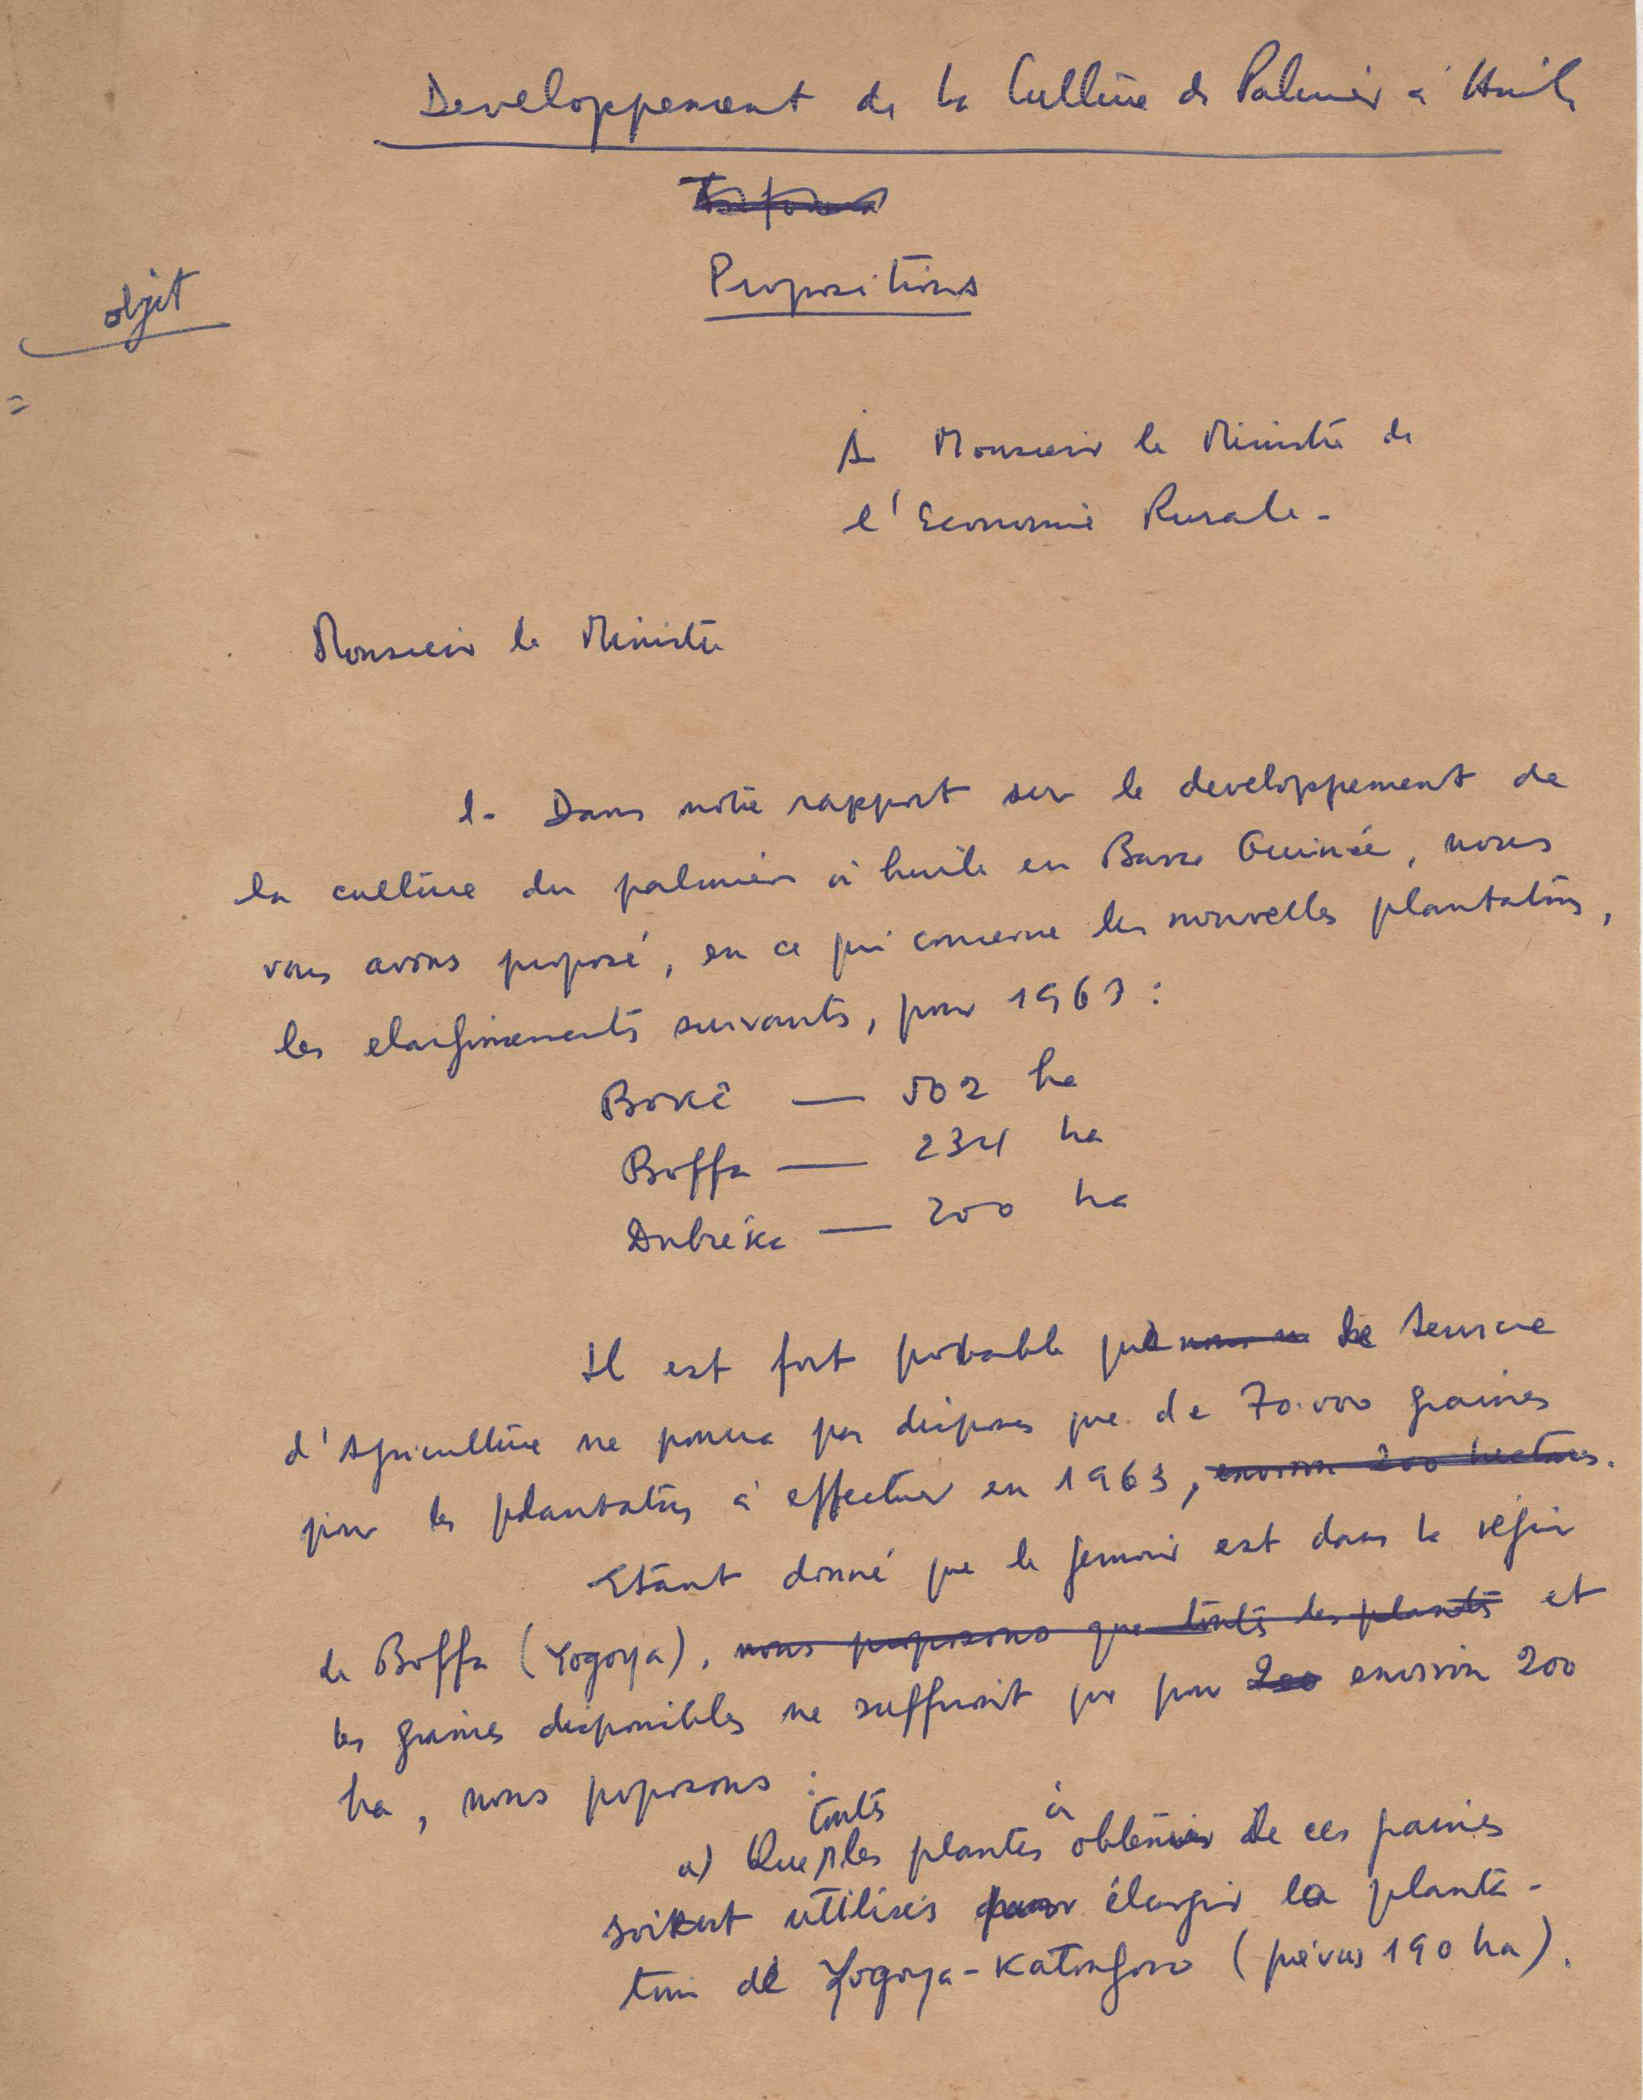 Developpement de la Culture de Palmier à Huile
Propositions
objet
A Monsieur le Ministre de
l'Economie Rurale -
Monsieur le Ministre
1- Dans notre rapport sur le developpement de
la culture du palmier à huile en Basse Guinée, nous
vous avons proposé, en ce qui concerne les nouvelles plantations,
les elargissements suivants, pour 1963 :
Boké — 502 ha
Boffa — 234 ha
Dubréka — 200 ha
Il est fort probable que le Service
d'Agriculture ne pourra pas disposer que de 70.000 graines
pour les plantations à effectuer en 1963, environ 200 hectares.
Etant donné que le germoir est dans la région
de Boffa (Yogoya), nous proposons que toutes les plantes et
les graines disponibles ne suffiront que pour 200 environ 200
ha, nous proposons :
a) Que toutes les plantes à obtenir de ces graines
soient utilisés pour élargir la planta-
tion de Yogoya-Katongoro (prévus 190 ha).